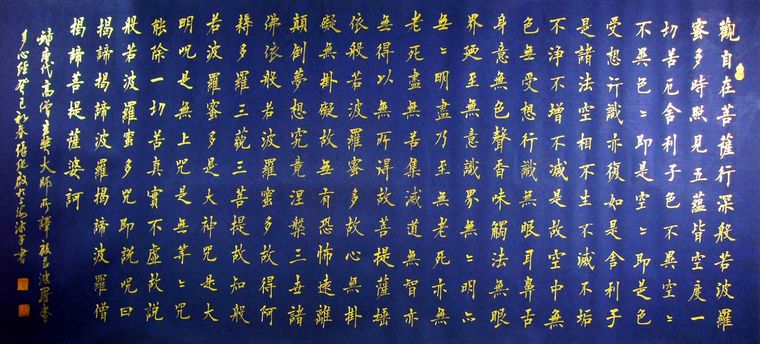 觀自在菩薩行深般若波羅
蜜多時照見五蘊皆空度一
切苦厄舍利子色不異空〻
不異色〻即是空〻即是色
受想行識亦復如是舍利子
是諸法空相不生不滅不垢
不淨不增不減是故空中無
色無受想行識無眼耳鼻舌
身意無色聲香味觸法無眼
界廼至無意識界無〻明亦
無〻明盡乃至無老死亦無
老死盡無苦集滅道無智亦
無得以無所得故菩提薩埵
依般若波羅蜜多故心無掛
礙無掛礙故無有恐怖遠離
顛倒夢想究竟涅槃三世諸
佛依般若波羅蜜多故得阿
耨多羅三藐三菩提故知般
若波羅蜜多是大神咒是大
明咒是無上咒是無等〻咒
能除一切苦真實不虛故說
般若波羅蜜多咒即說咒曰
揭諦揭諦波羅揭諦波羅僧
揭諦菩提薩婆訶
唐代高僧玄奘大師所譯般若波羅蜜
多心經癸巳初春於上海書